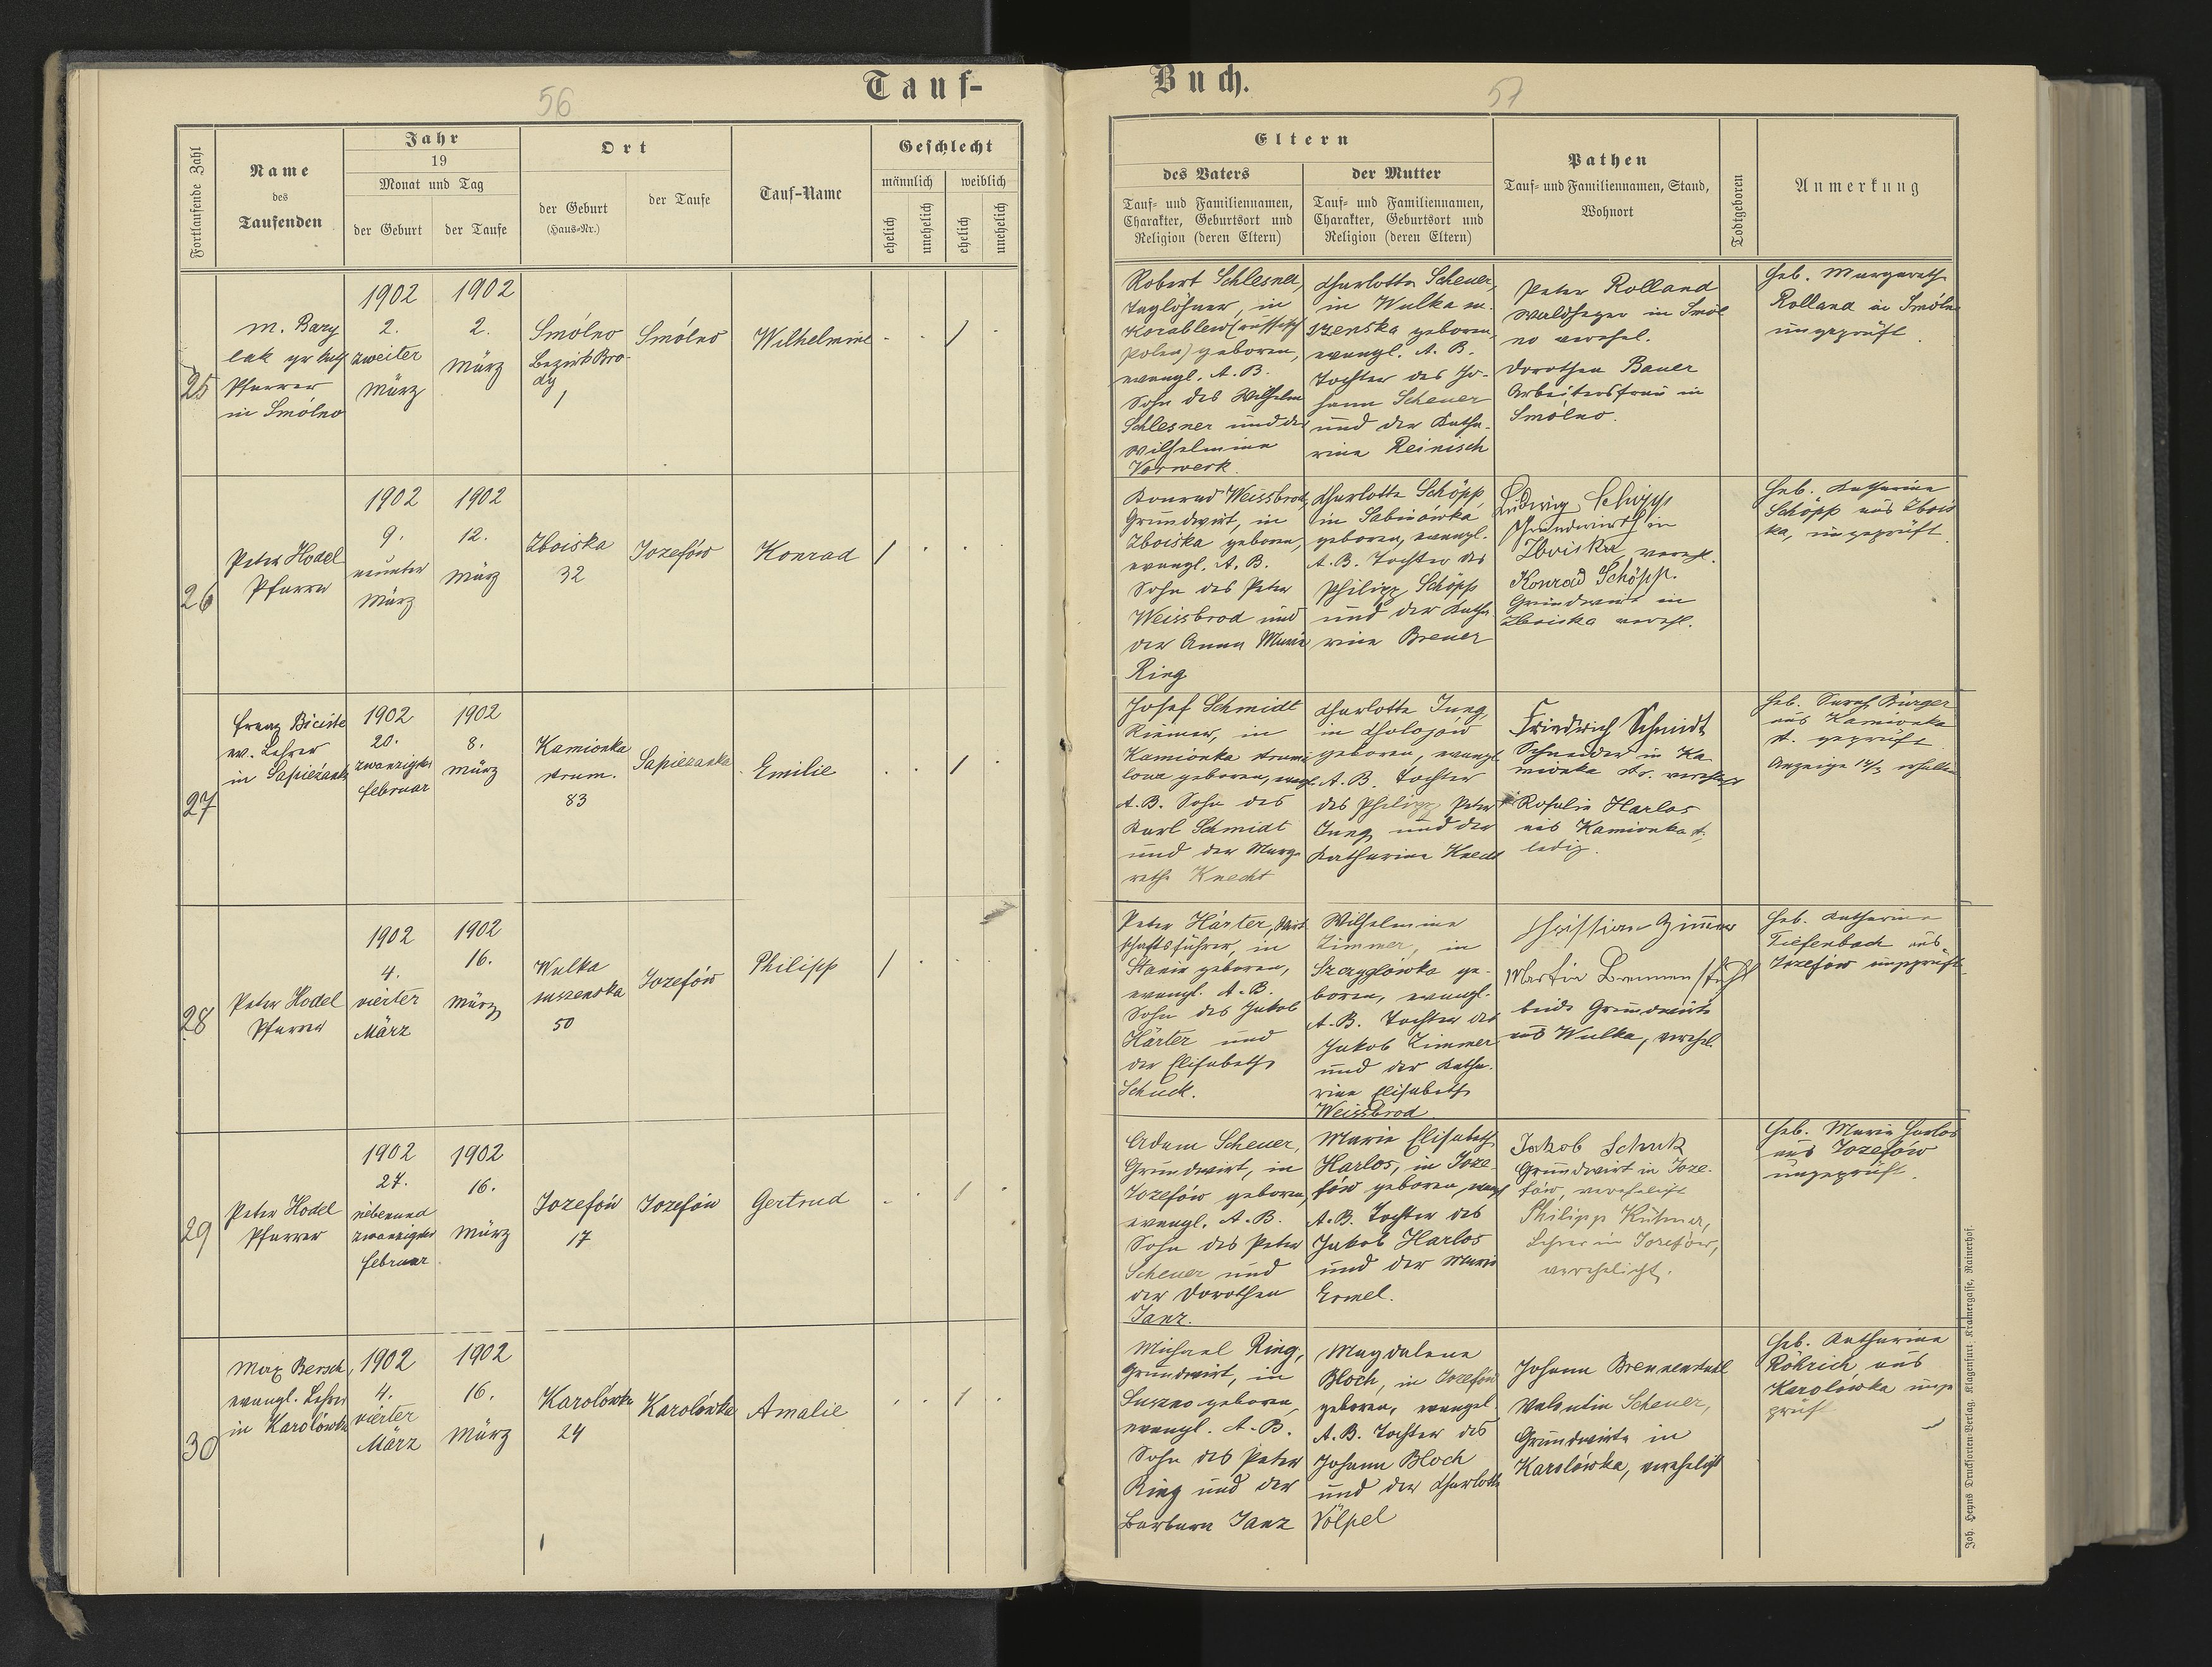 56
Tauf-
Fortlaufende Zahl
Name
des
Taufenden
Jahr
19
Monat und Tag
der Geburt
der Taufe
Ort
der Geburt
(Haus-Nr.)
der Taufe
Tauf-Name
Geschlecht
männlich
weiblich
ehelich
unehelich
ehelich
unehelich
25
M. Bary
lak
Pfarrer
in Smólno
1902
2.
zweiter
März
1902
2.
März
Smólno
Bezirk Bro-
dy
1
Smólno
Wilhelmine
26
Peter Hodel
Pfarrer
1902
9.
neunter
März
1902
12.
März
Zboiska
32
Jozefów
Konrad
27
Franz
ev. Lehrer
in Sapieżanka
1902
20.
zwanzigster
Februar
1902
8.
März
Kamionka
strum.
83
Sapieżanka
Emilie
28
Peter Hodel
Pfarrer
1902
4.
vierter
März
1902
16.
März
Wulka
suszenska
50
Jozefów
Philipp
29
Peter Hodel
Pfarrer
1902
27.
siebenund
zwanzigster
Februar
1902
16.
März
Jozefów
17
Jozefów
Gertrud
30
Max Bersch,
evangl. Lehrer
in Karolówka
1902
4.
vierter
März
1902
16.
März
Karolówka
24
Karolówka
Amalie
Buch.
57
Eltern
des Vaters
Tauf- und Familiennamen,
Charakter, Geburtsort und
Religion (deren Eltern)
der Mutter
Tauf- und Familiennamen,
Charakter, Geburtsort und
Religion (deren Eltern)
Pathen
Tauf- und Familiennamen, Stand,
Wohnort
Todtgeboren
Anmerkung
Robert Schlesner,
Taglöhner, in
Korablew (russisch
Polen) geboren,
evangl. A. B.
Sohn des Wilhelm
Schlesner und der
Wilhelmine
Vorwerk.
Charlotte Scheuer,
in Wulka su
szenska geboren,
evangl. A. B.
Tochter des Jo-
hann Scheuer
und der Katha-
rina Reinisch
Peter Rolland
Waldheger in Smól
no verehel.
Dorothea Bauer
Arbeitersfrau in
Smólno.
Heb. Margareth
Rolland in Smólno
ungeprüft.
Konrad Weissbrod,
Grundwirt, in
Zboiska geboren,
evangl. A. B.
Sohn des Peter
Weissbrod und
der Anna Maria
Ring
Charlotte Schöpp
in Sabinówka
geboren, evangl.
A. B. Tochter des
Philipp Schöpp
und der Katha
rina Breuer
Ludwig Schöpp
Grundwirth in
Zboiska verehl.
Konrad Schöpp.
Grundwirt in
Zboiska verehl.
Heb. Katharina
Schöpp aus Zbois
ka, ungeprüft.
Josef Schmidt
Riemer, in
Kamionka strumi
lowa geboren, evangl.
A. B. Sohn des
Karl Schmidt
und der Marga
retha Knecht
Charlotte Jung,
in Chołojów
geboren, evangl.
A. B. Tochter
des Philipp Peter
Jung und der
Katharina Knecht
Friedrich Schmidt
Schneider in Ka
mionka str. verehel.
Rosalia Harlos
aus Kamionka st.
ledig.
Heb. Sarah Bürger
aus Kamionka
st. geprüft
Anzeige 14/3 erhalten
Peter Härter, Wirt
schaftsführer, in
Stanin geboren,
evangl. A. B.
Sohn des Jakob
Härter und
der Elisabeth
Schuck.
Wilhelmine
Zimmer, in
Szczyglówka ge-
boren, evangl.
A. B. Tochter des
Jakob Zimmer
und der Katha-
rina Elisabeth
Weissbrod
Christian Zimmer
Martin Brennenstuhl
beide Grundwirte
aus Wulka, verehel.
Heb. Katharina
Tiefenbach aus
Jozefów ungeprüft
Adam Scheuer,
Grundwirt, in
Jozefów geboren,
evangl. A. B.
Sohn des Peter
Scheuer und
der Dorothea
Janz.
Maria Elisabeth
Harlos, in Joze
fów geboren, evangl
A. B. Tochter des
Jakob Harlos
und der Maria
Ermel.
Jakob Schuk
Grundwirt in Joze-
fów, verehelicht
Philipp Kühner,
Lehrer in Jozefów,
verehelicht.
Heb. Maria Harlos
aus Jozefów
ungeprüft.
Michael Ring,
Grundwirt, in
geboren,
evangl. A. B.
Sohn des Peter
Ring und der
Barbara Janz
Magdalena
Bloch, in Jozefów
geboren, evangel.
A. B. Tochter des
Johann Bloch
und der Charlotte
Völpel
Johann Brennenstuhl
Valentin Scheuer,
Grundwirte in
Karolówka, verehelicht
Heb. Katharina
Röhrich aus
Karolówka unge
prüft
Joh. Heyns Drucksorten-Verlag. Klagenfurt. Kramergasse, Rainerhof.